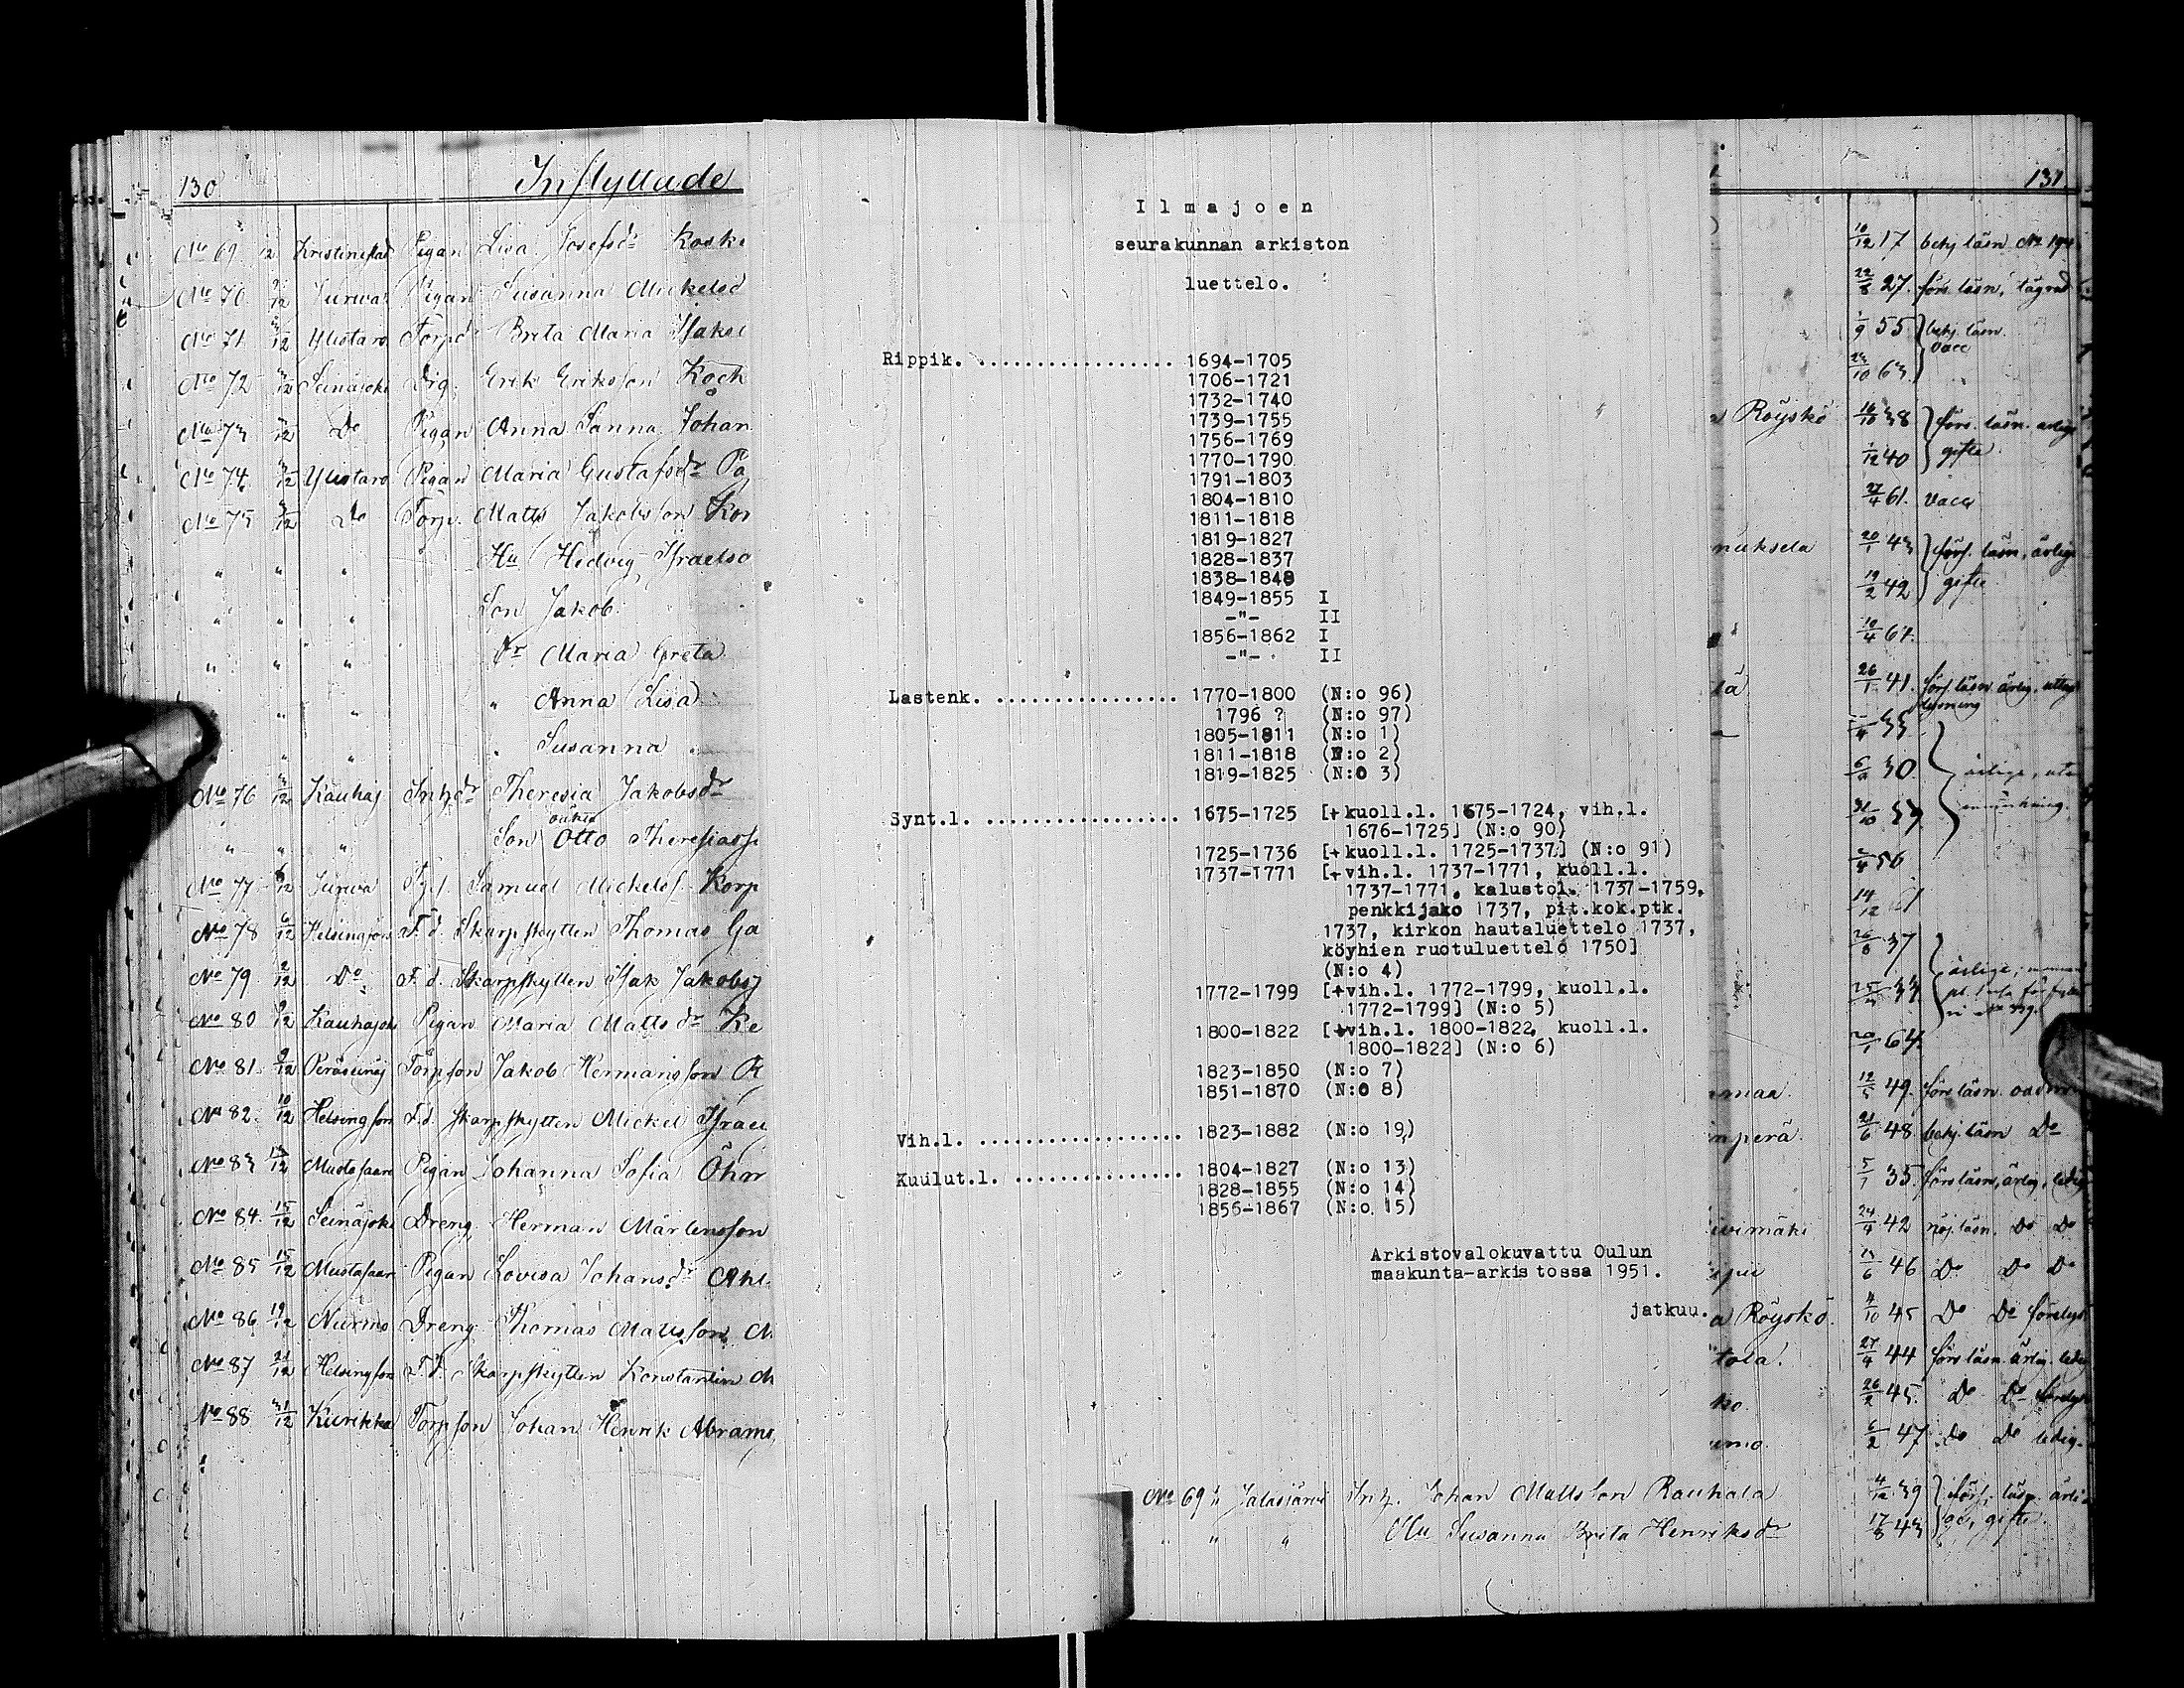 130
Inflyttade
No 69 Kristinestad Pigan Lisa Josefsdr Koski
No 70 9/12 Jurva Pigan Susanna Mickelsd
No 71 Ylistaro Torpd Brita Maria Isaks
No 72 Seinäjoki Drg. Erik Eriksson Kock
No 73 Do Pigan Anna Sanna Johan
No 74 Ylistaro Pigan Maria Gustafsdr Pa
No 75 Do Torp. Matts Jakobsson Kor
" " " Hu Hedvig Israelsd
" " " Son Jakob
" " " Dr Maria Greta
" " " " Anna Lisa
" " " " Susanna
No 76 Kauhaj Inhdr Theresia Jakobsdr
oäkta
" " Son Otto Theresiass
No 77 Jurva Samuel Mickelss. Korp
No 78 6/12 Helsingfors F.d. Skarpskytten Thomas Ga
No 79 2/12 Do F.d. Skarpskytten Isak Jakobs
No 80 9/12 Kauhajoki Pigan Maria Mattsdr Ke
No 81 9/12 Peräseinäj Torpson Jakob Hermansson R
No 82 10/12 Helsingfors F.d. skarpskytten Mickel Israe
No 83 Mustasaari Pigan Johanna Sofia Öhm
No 84 15/12 Seinäjoki Dreng Herman Mårtensson
No 85 15/12 Mustasaari Pigan Lovisa Johansdr Ahl
No 86 19/12 Nurmo Dreng Thomas Mattsson
No 87 21/12 Helsingfors F.d. Skarpskytten Konstantin
No 88 31/12 Kurikka Torpson Johan Henrik Abrams
Ilmajoen
seurakunnan arkiston
luettelo.
Rippik. .................. 1694-1705
1706-1721
1732-1740
1739-1755
1756-1769
1770-1790
1791-1803
1804-1810
1811-1818
1819-1827
1828-1837
1838-1848
1849-1855 I
-"- II
1856-1862 I
-"- II
Lastenk. ................. 1770-1800 (N:o 96)
1796 ? (N:o 97)
1805-1811 (N:o 1)
1811-1818 (N:o 2)
1819-1825 (N:o 3)
Synt.l. .................. 1675-1725 [+kuoll.l. 1675-1724, vih.l.
1676-1725] (N:o 90)
1725-1736 [+kuoll.l. 1725-1737] (N:o 91)
1737-1771 [+vih.l. 1737-1771, kuoll.l.
1737-1771, kalustol. 1737-1759,
penkkijako 1737, pit.kok.ptk.
1737, kirkon hautaluettelo 1737,
köyhien ruotuluettelo 1750]
(N:o 4)
1772-1799 [+vih.l. 1772-1799, kuoll.l.
1772-1799] (N:o 5)
1800-1822 [+vih.l. 1800-1822, kuoll.l.
1800-1822] (N:o 6)
1823-1850 (N:o 7)
1851-1870 (N:o 8)
Vih.l. ................... 1823-1882 (N:o 19)
Kuulut.l. ................ 1804-1827 (N:o 13)
1828-1855 (N:o 14)
1856-1867 (N:o 15)
Arkistovalokuvattu Oulun
maakunta-arkistossa 1951.
jatkuu.
No 69 Jalasjärvi Inh. Johan Mattsson Rauhala
" " " Hu Susanna Brita Henriksdr
131
10/12 17 behj läsn
22/8 27. förs. läsn,
1/9 55 behj. läsn.
vacc
10 63
Röyskö 16/10 38 förs. läsn. ärlige
1/12 40 gifte
27/4 61. vacc
nuksela 20/1 43 förs. läsn, ärlige
19/2 42 gifte
10/4 67.
lä 26/1 41. förs läsn ärlig,
6 30 ärlige, utan
anmärkning.
56
14/12
26/8 37 ärlige,
64
maa. 12/5 49. förs läsn.
mperä. 21/6 48. behj. läsn Do
5/1 35. förs läsn, ärlig, ledig
ivimäki 24/4 42 nöj. läsn. Do Do
6 46 Do Do Do
a Röyskö. 4/10 45 Do Do
tola. 27/4 44 förs läsn. ärlig. ledig
ko. 26/2 45. Do Do
rmo. 6/2 47 Do Do ledig.
4/12 39 förs. läsn. ärli
17/8 43 gifte.